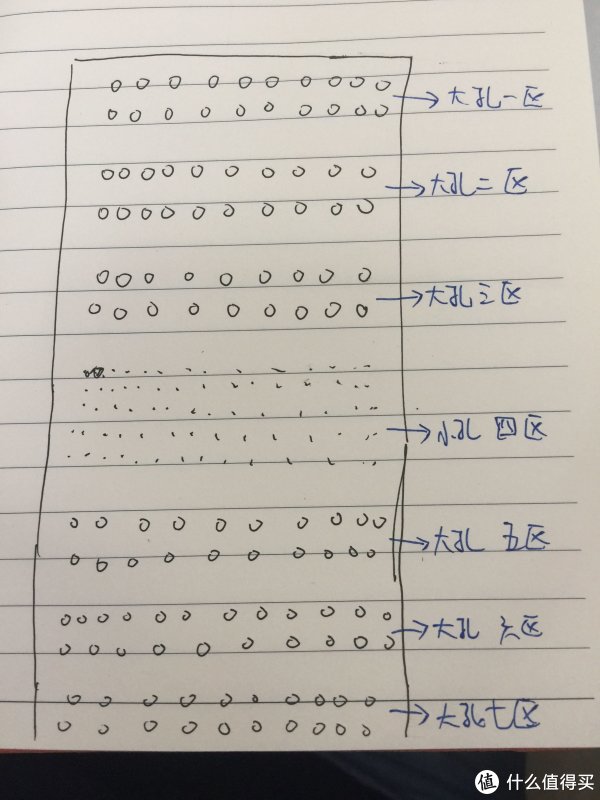 大孔一区
大孔二区
大孔三区
小孔 四区
大孔 五区
大孔 六区
大孔七区
值 什么值得买